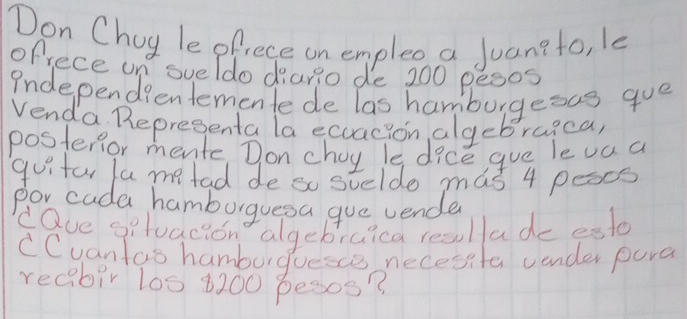 Don Chuy le ofrece un empleo a Juanito, le
ofrece un sueldo diario de 200 pesos
independientemente de las hamburgesas que
venda. Representa la ecuación algebraica,
posterior mente, Don chuy le dice que le va a
quitar la mitad de su sueldo más 4 pesos
por cada hamburguesa que venda
¿Que situación algebraica resulla de esto
¿Cuantas hamburguesas necesita vender para
recibir los $200 pesos?